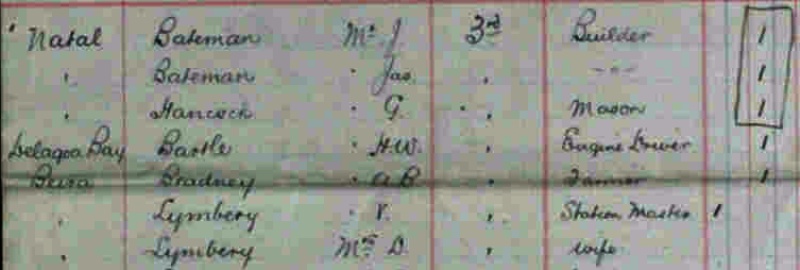 ' Natal Bateman Mr J 3rd Builder 1
" Bateman " Jas. " -"- 1
" Hancock " G. " Mason 1
Delagoa Bay Bartle " H.W. " Engine Driver 1
Beira Bradney " A B " Farmer 1
" Lymbery " V. " Station Master 1
" Lymbery Mrs D. " wife